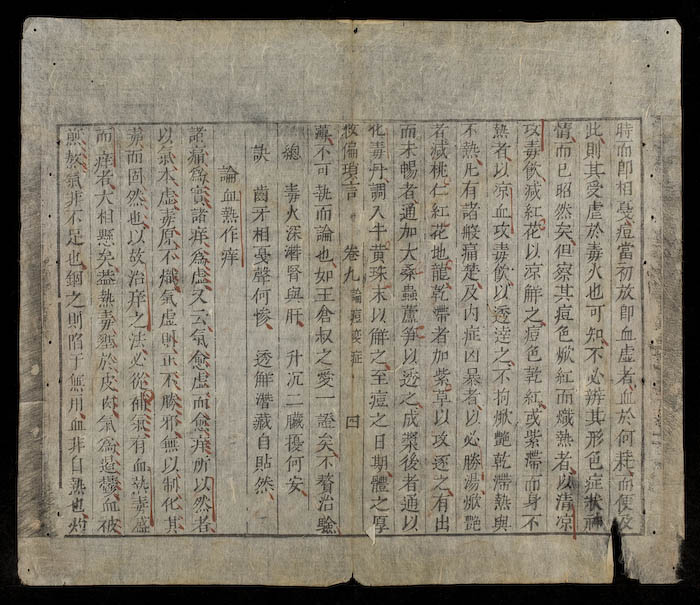 時而即相戞痘當初放即血虛者血於何耗而便及
此則其受虐於毒火也可知不必辨其形色症狀神
情而已昭然矣但察其痘色焮紅而熾熱者以清凉
攻毒飲減紅花以凉解之痘色乾紅或紫滯而身不
熱者以凉血攻毒飲以透達之不拘焮艶乾滯熱與
不熱凡有諸般痛楚及內症凶暴者以必勝湯焮艶
者減桃仁紅花地龍乾滯者加紫草以攻逐之有出
而未暢者通加大桑蟲蘆笋以透之成漿後者通以
化毒丹調入牛黃珠末以解之至痘之日期體之厚
救偏瑣言 卷九 論痘變症 四
薄不可執而論也如王倉叔之愛一證矣不贅治驗
總 毒火深潛腎與肝 升沉二臟擾何安
訣 齒牙相戞聲何慘 透解潛藏自貼然
論血熱作痒
諸痛為實諸痒為虛又云氣愈虛而愈痒所以然者
以氣本虛毒原不熾氣虛則正不勝邪無以制化其
毒而固然也以故治痒之法必從補氣有血熱毒盛
而痒者大相懸矣蓋熱毒壅於皮肉氣為鬱血被
煎熬氣非不足也錮之則陷于無用血非自熱也灼